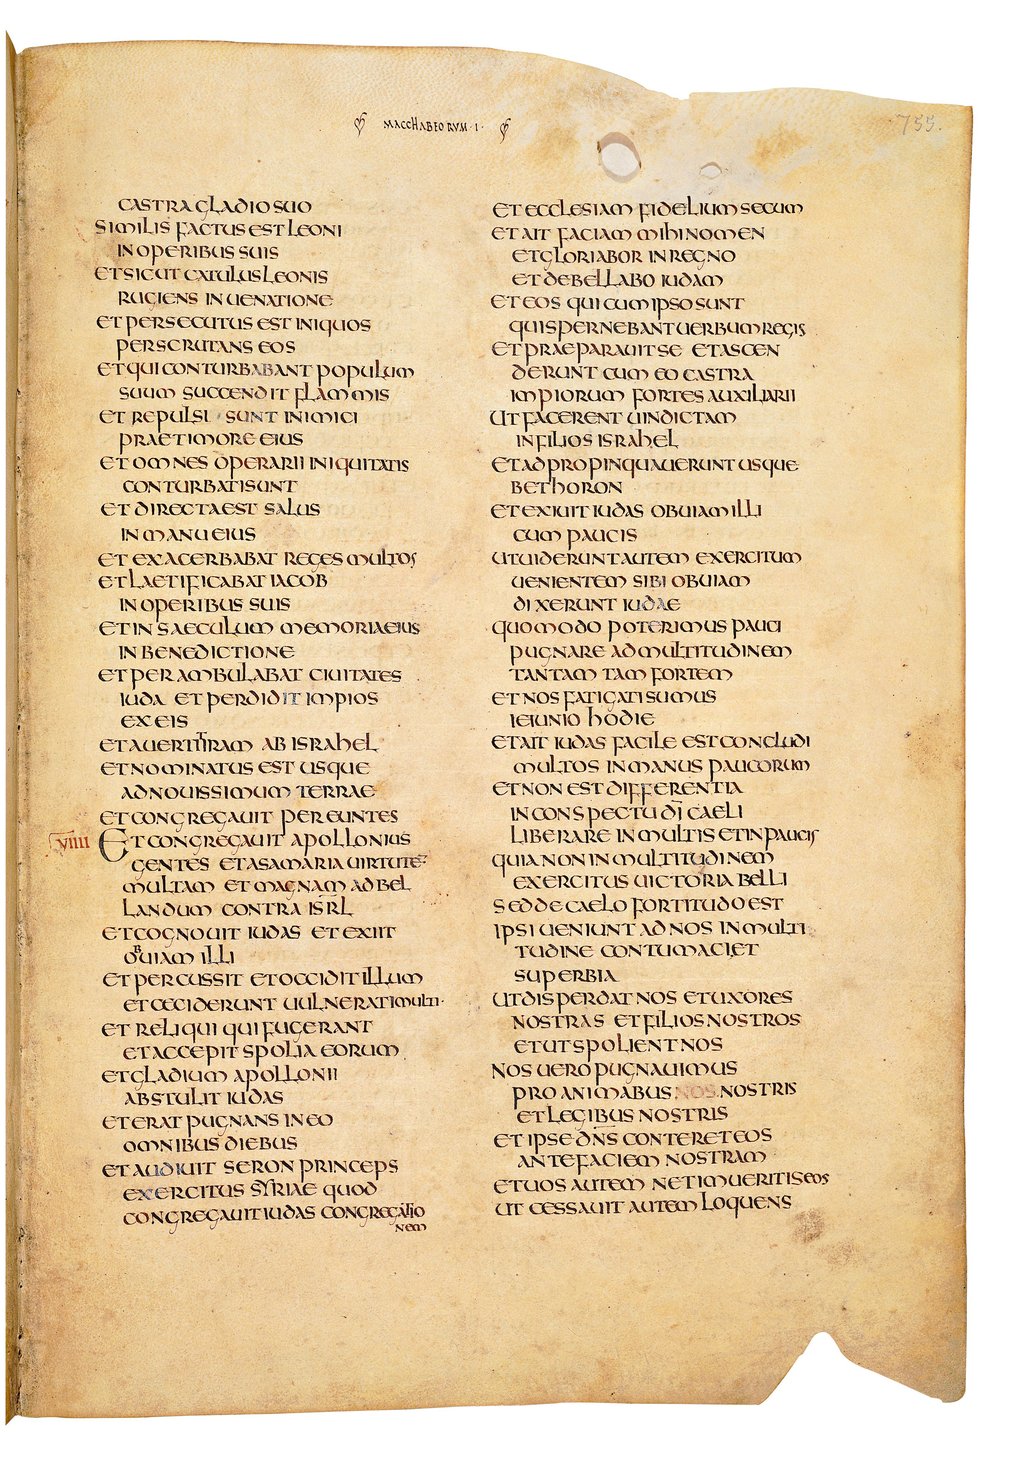 MACCHABEORUM·I·
755.
CASTRA GLADIO SUO
SIMILIS FACTUS EST LEONI
IN OPERIBUS SUIS
ET SICUT CATULUS LEONIS
RUGIENS IN UENATIONE
ET PERSECUTUS EST INIQUOS
PERSCRUTANS EOS
ET QUI CONTURBABANT POPULUM
SUUM SUCCENDIT FLAMMIS
ET REPULSI SUNT INIMICI
PRAE TIMORE EIUS
ET OMNES OPERARII INIQUITATIS
CONTURBATI SUNT
ET DIRECTA EST SALUS
IN MANU EIUS
ET EXACERBABAT REGES MULTOS
ET LAETIFICABAT IACOB
IN OPERIBUS SUIS
ET IN SAECULUM MEMORIA EIUS
IN BENEDICTIONE
ET PERAMBULABAT CIUITATES
IUDA ET PERDIDIT IMPIOS
EX EIS
ET AUERTIT IRAM AB ISRAHEL
ET NOMINATUS EST USQUE
AD NOUISSIMUM TERRAE
ET CONGREGAUIT PEREUNTES
VIIII ET CONGREGAUIT APOLLONIUS
GENTES ET A SAMARIA UIRTUTE
MULTAM ET MAGNAM AD BEL
LANDUM CONTRA ISRL
ET COGNOUIT IUDAS ET EXIIT
OBUIAM ILLI
ET PERCUSSIT ET OCCIDIT ILLUM
ET CECIDERUNT UULNERATI MULTI·
ET RELIQUI QUI FUGERANT
ET ACCEPIT SPOLIA EORUM
ET GLADIUM APOLLONII
ABSTULIT IUDAS
ET ERAT PUGNANS IN EO
OMNIBUS DIEBUS
ET AUDIUIT SERON PRINCEPS
EXERCITUS SYRIAE QUOD
CONGREGAUIT IUDAS CONGREGATIO
NEM
ET ECCLESIAM FIDELIUM SECUM
ET AIT FACIAM MIHI NOMEN
ET GLORIABOR IN REGNO
ET DEBELLABO IUDAM
ET EOS QUI CUM IPSO SUNT
QUI SPERNEBANT UERBUM REGIS
ET PRAEPARAUIT SE ET ASCEN
DERUNT CUM EO CASTRA
IMPIORUM FORTES AUXILIARII
UT FACERENT UINDICTAM
IN FILIOS ISRAHEL
ET ADPROPINQUAUERUNT USQUE
BETHORON
ET EXIUIT IUDAS OBUIAM ILLI
CUM PAUCIS
UT UIDERUNT AUTEM EXERCITUM
UENIENTEM SIBI OBUIAM
DIXERUNT IUDAE
QUOMODO POTERIMUS PAUCI
PUGNARE AD MULTITUDINEM
TANTAM TAM FORTEM
ET NOS FATIGATI SUMUS
IEIUNIO HODIE
ET AIT IUDAS FACILE EST CONCLUDI
MULTOS IN MANUS PAUCORUM
ET NON EST DIFFERENTIA
IN CONSPECTU DI CAELI
LIBERARE IN MULTIS ET IN PAUCIS
QUIA NON IN MULTITUDINEM
EXERCITUS UICTORIA BELLI
SED DE CAELO FORTITUDO EST
IPSI UENIUNT AD NOS IN MULTI
TUDINE CONTUMACI ET
SUPERBIA
UT DISPERDAT NOS ET UXORES
NOSTRAS ET FILIOS NOSTROS
ET UT SPOLIENT NOS
NOS UERO PUGNAUIMUS
PRO ANIMABUS NOSTRIS
ET LEGIBUS NOSTRIS
ET IPSE DNS CONTERET EOS
ANTE FACIEM NOSTRAM
ET UOS AUTEM NE TIMUERITIS EOS
UT CESSAUIT AUTEM LOQUENS